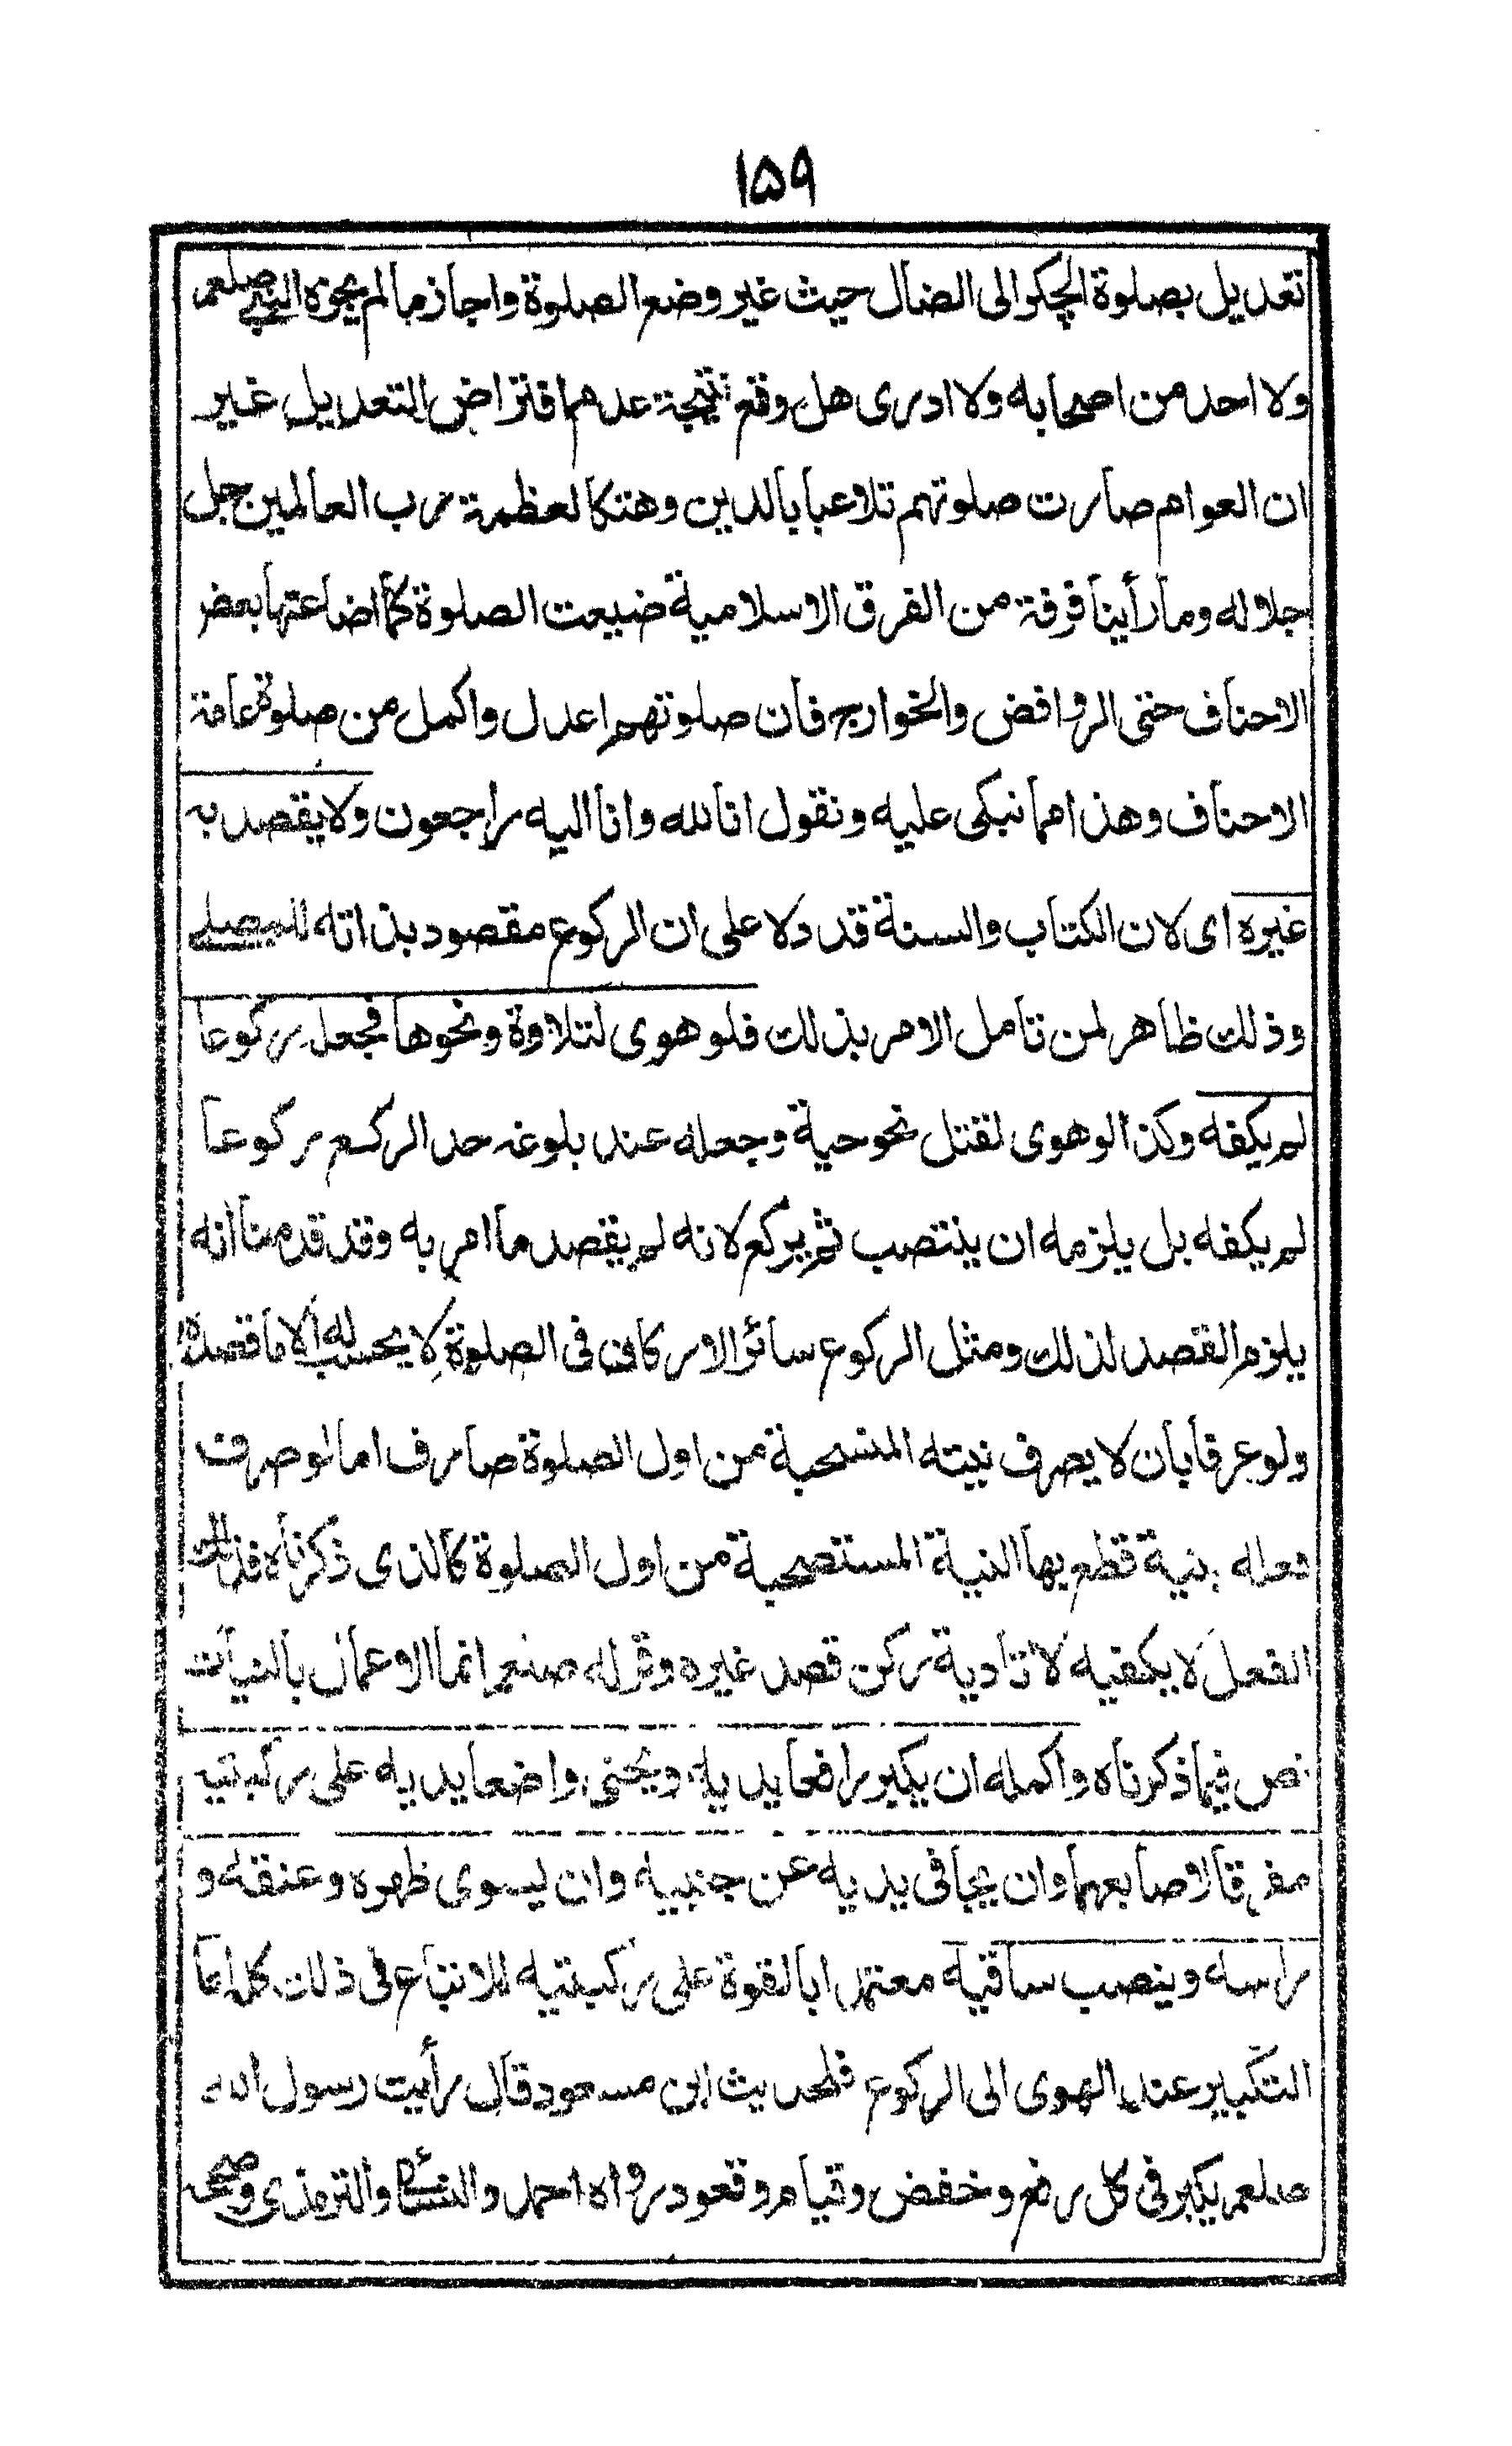 ۱۵۹
تعديل بصلوة الچكوالى الضال حيث غير وضع الصلوة واجاز ما لم يجوزه النبي صلعم
ولا احد من اصحابه ولا ادرى هل وقع نتيجة عدم افتراض التعديل غير
ان العوام صارت صلوتهم تلاعبا بالدين وهتكا لعظمة رب العالمين جل
جلاله وما رأينا فرقة من الفرق الاسلامية ضيعت الصلوة كما اضاعتها بعض
الاحناف حتى الروافض والخوارج فان صلوتهم اعدل واكمل من صلوة عامة
الاحناف وهذا مما نبكى عليه ونقول انا لله وانا اليه راجعون ولا يقصد به
غيره اى لان الكتاب والسنة قد دلا على ان الركوع مقصود بذاته للمصلے
وذلك ظاهر لمن تامل الامر بذلك فلو هوى لتلاوة ونحوها فجعل ركوعا
لم يكفه وكذا لو هوى لقتل نحو حية وجعله عند بلوغه حد الركع ركوعا
لم يكفه بل يلزمه ان ينتصب ثم يركع لانه لم يقصد ما امر به وقد قدمنا انه
يلزم القصد لذلك ومثل الركوع سائر الاركان فى الصلوة لا يحسب له الا ما قصده
ولو عرفا بان لا يصرف نيته المنسحبة من اول الصلوة صارف اما لو صرف
فعله بنية قطع بها النية المستصحبة من اول الصلوة كالذى ذكرناه فذلك
الفعل لا يكفيه لا تادية ركن قصد غيره وقوله صلعم انما الاعمال بالنيات
نص فيما ذكرناه واكمله ان يكبر رافعا يديه وينحنى واضعا يديه على ركبتيه
مفرقا لاصابعهما وان يجافى يديه عن جنبيه وان يسوى ظهره وعنقه و
راسه وينصب ساقيه معتمدا بالقوة على ركبتيه للاتباع فى ذلك كله اما
التكبير عند الهوى الى الركوع فلحديث ابن مسعود قال رأيت رسول الله
صلعم يكبر فى كل رفع وخفض وقيام وقعود رواه احمد والنسائى والترمذى وصححه